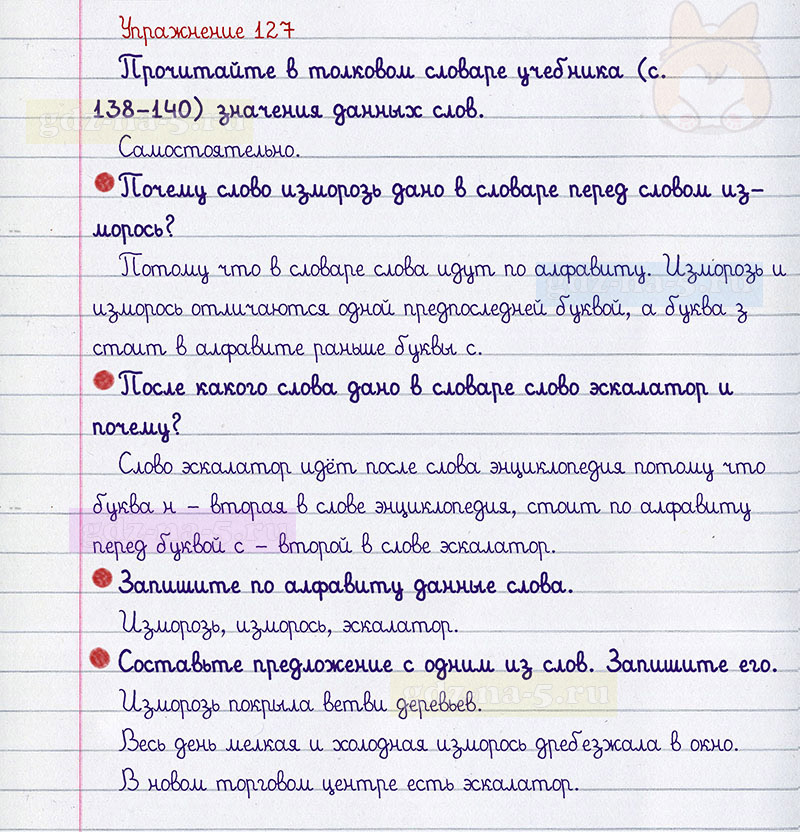 Упражнение 127
Прочитайте в толковом словаре учебника (с.
138-140) значения данных слов.
gdz-na-5.ru
Самостоятельно.
Почему слово изморозь дано в словаре перед словом из-
морось?
Потому что в словаре слова идут по алфавиту. Изморозь и
gdz-na-5.ru
изморось отличаются одной предпоследней буквой, а буква з
стоит в алфавите раньше буквы с.
После какого слова дано в словаре слово эскалатор и
почему?
Слово эскалатор идёт после слова энциклопедия потому что
буква н - вторая в слове энциклопедия, стоит по алфавиту
gdz-na-5.ru
перед буквой с - второй в слове эскалатор.
Запишите по алфавиту данные слова.
Изморозь, изморось, эскалатор.
Составьте предложение с одним из слов. Запишите его.
gdz-na-5.ru
Изморозь покрыла ветви деревьев.
Весь день мелкая и холодная изморось дребезжала в окно.
В новом торговом центре есть эскалатор.